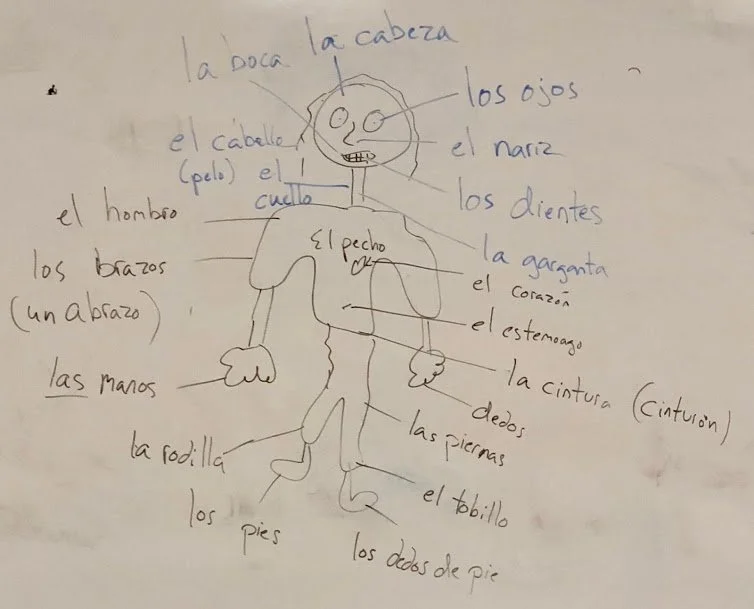 la boca
la cabeza
los ojos
el cabello
(pelo)
el nariz
el
cuello
los dientes
el hombro
El pecho
la garganta
los brazos
(un abrazo)
el corazón
el estemoago
las manos
la cintura (cinturón)
dedos
las piernas
la rodilla
el tobillo
los pies
los dedos de pie